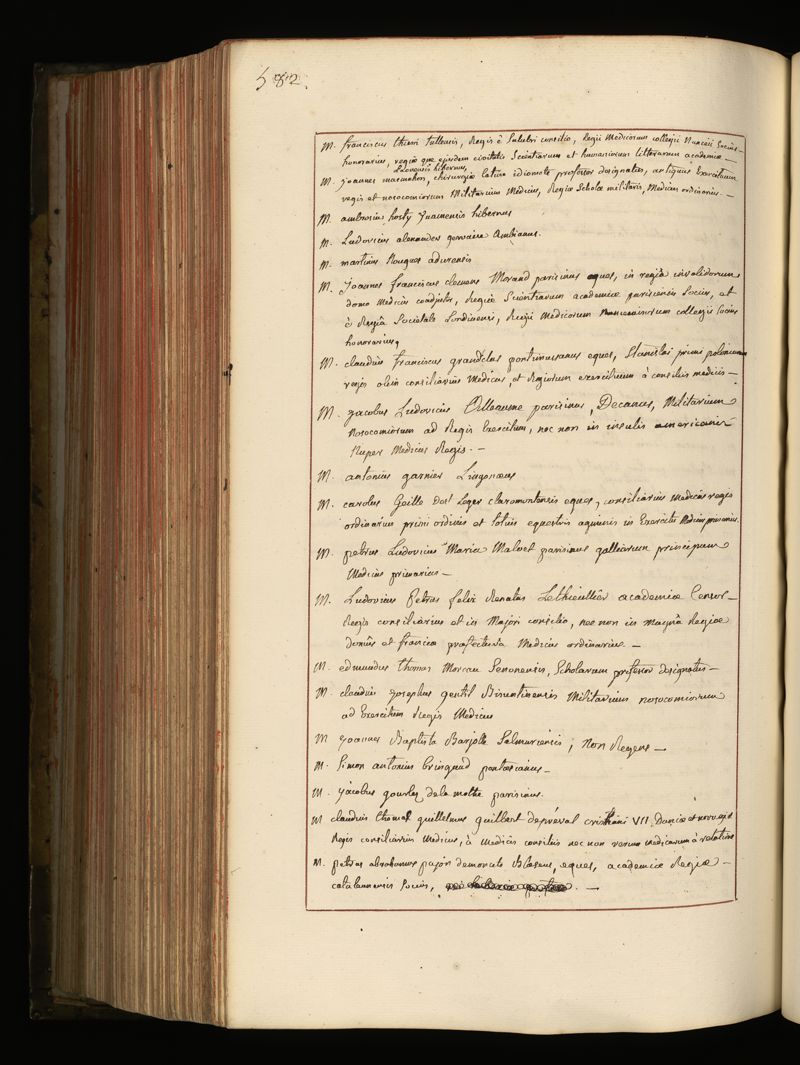 582.
M. franciscus thieri tullensis, Regis è Salubri consilio, Regii Medicorum collegii Nanceii Socius
honorarius, regiæ que ejusdem civitatis Scientiarum et humaniorum litterarum academiæ —
hibernus,
M. joannes macmahon, chirurgiæ latino idiomate professor designatus, antiquus Exercituum
regis et nosocomiorum Militarium Medicus, Regiæ Scholæ militaris, Medicus ordinarius —
M. ambrosius hosty hibernus
M. Ludovicus alexander gervaise Ambianus.
M. martinus Nougues adurensis
M. Joannes franciscus clemens Morand parisinus eques, in regiâ invalidorum
domo Medicus coadjutor, Regiæ Scientiarum academiæ parisiensis Socius, et
è Regiâ Societate Londinensi, Regii Medicorum collegii Socius
honorarius,
M. claudius franciscus grandclas eques, Stanislai primi polonorum
regis olim consiliarius Medicus, et Regiorum exercituum à consiliis medicis —
M. jacobus Ludovicus Alleaume parisinus, Decanus, Militarium
Nosocomiorum ad Regis Exercitum, nec non in insulis americanis
Nuper Medicus Regis. —
M. antonius garnier Lingonæus
M. carolus Geille Leger claromontensis eques, consiliarius Medicus regis
ordinarius primi ordinis et totius equestris agminis in Exercitu Medicus primarius.
M. petrus Ludovicus Maria Maloet parisinus galliarum principum
Medicus primarius —
M. Ludovicus Petrus felix Renatus Lethieullier academiæ Censor —
Regis consiliarius et in Majori consilio, nec non in magnâ Regiæ
domûs et franciæ præfecturâ Medicus ordinarius. —
M. edmundus thomas Moreau Senonensis, Scholarum professor designatus —
M. claudius josephus gentil Bisuntinensis Militarium nosocomiorum
ad Exercitum Regis Medicus
M joannes Baptista Barjolle Salmuriensis; Non Regens —
M. Simon antonius bringaud pontæsianus —
M. jacobus gourlez de la mothe parisinus.
M claudius thomas guillelmus guilbert de préval VII. Daniæ et norvegiæ
Regis consiliarius Medicus, à Medicis consiliis nec non rerum medicarum à relatione
M. petrus abrahamus pajon demoncets Blæsus, eques, academiæ Regiæ —
catalaunensis Socius, —